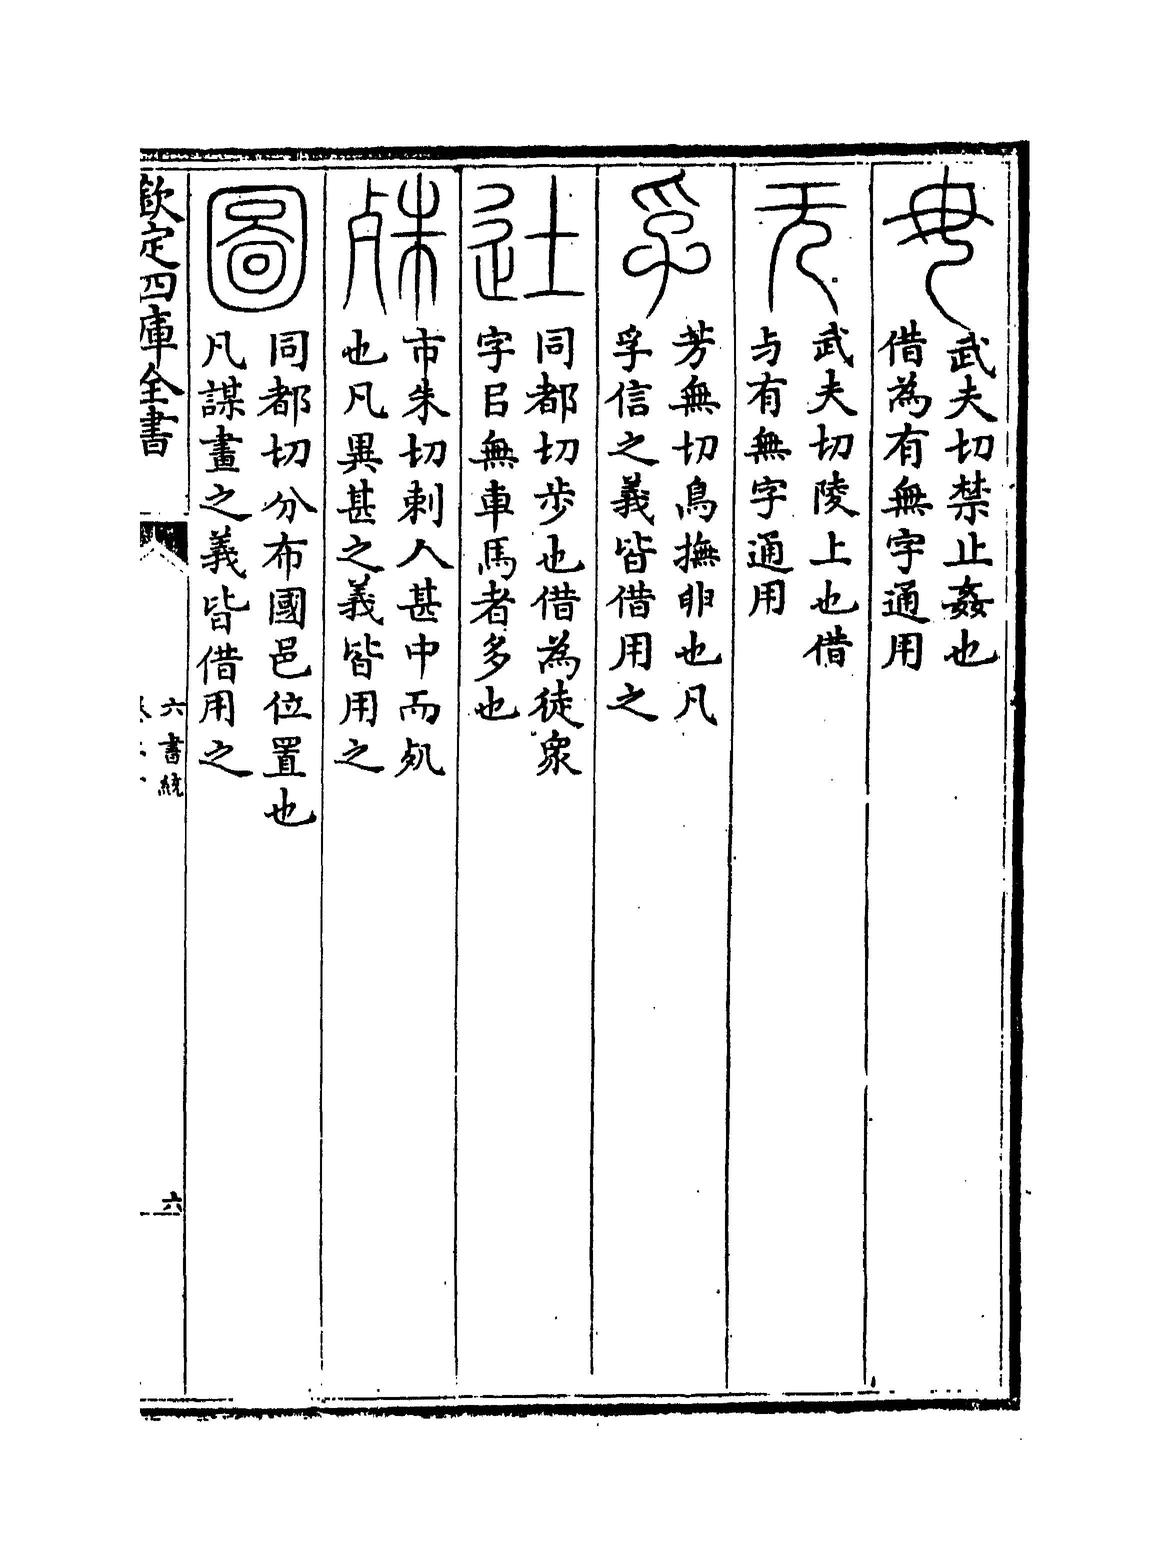 毋
武夫切禁止姦也
借為有無字通用
无
武夫切陵上也借
与有無字通用
孚
芳無切鳥撫卵也凡
孚信之義皆借用之
𨑒
同都切步也借為徒衆
字㠯無車馬者多也
殊
市朱切刺人甚中而歾
也凡異甚之義皆用之
圖
同都切分布國邑位置也
凡謀畫之義皆借用之
欽定四庫全書
六書統
六